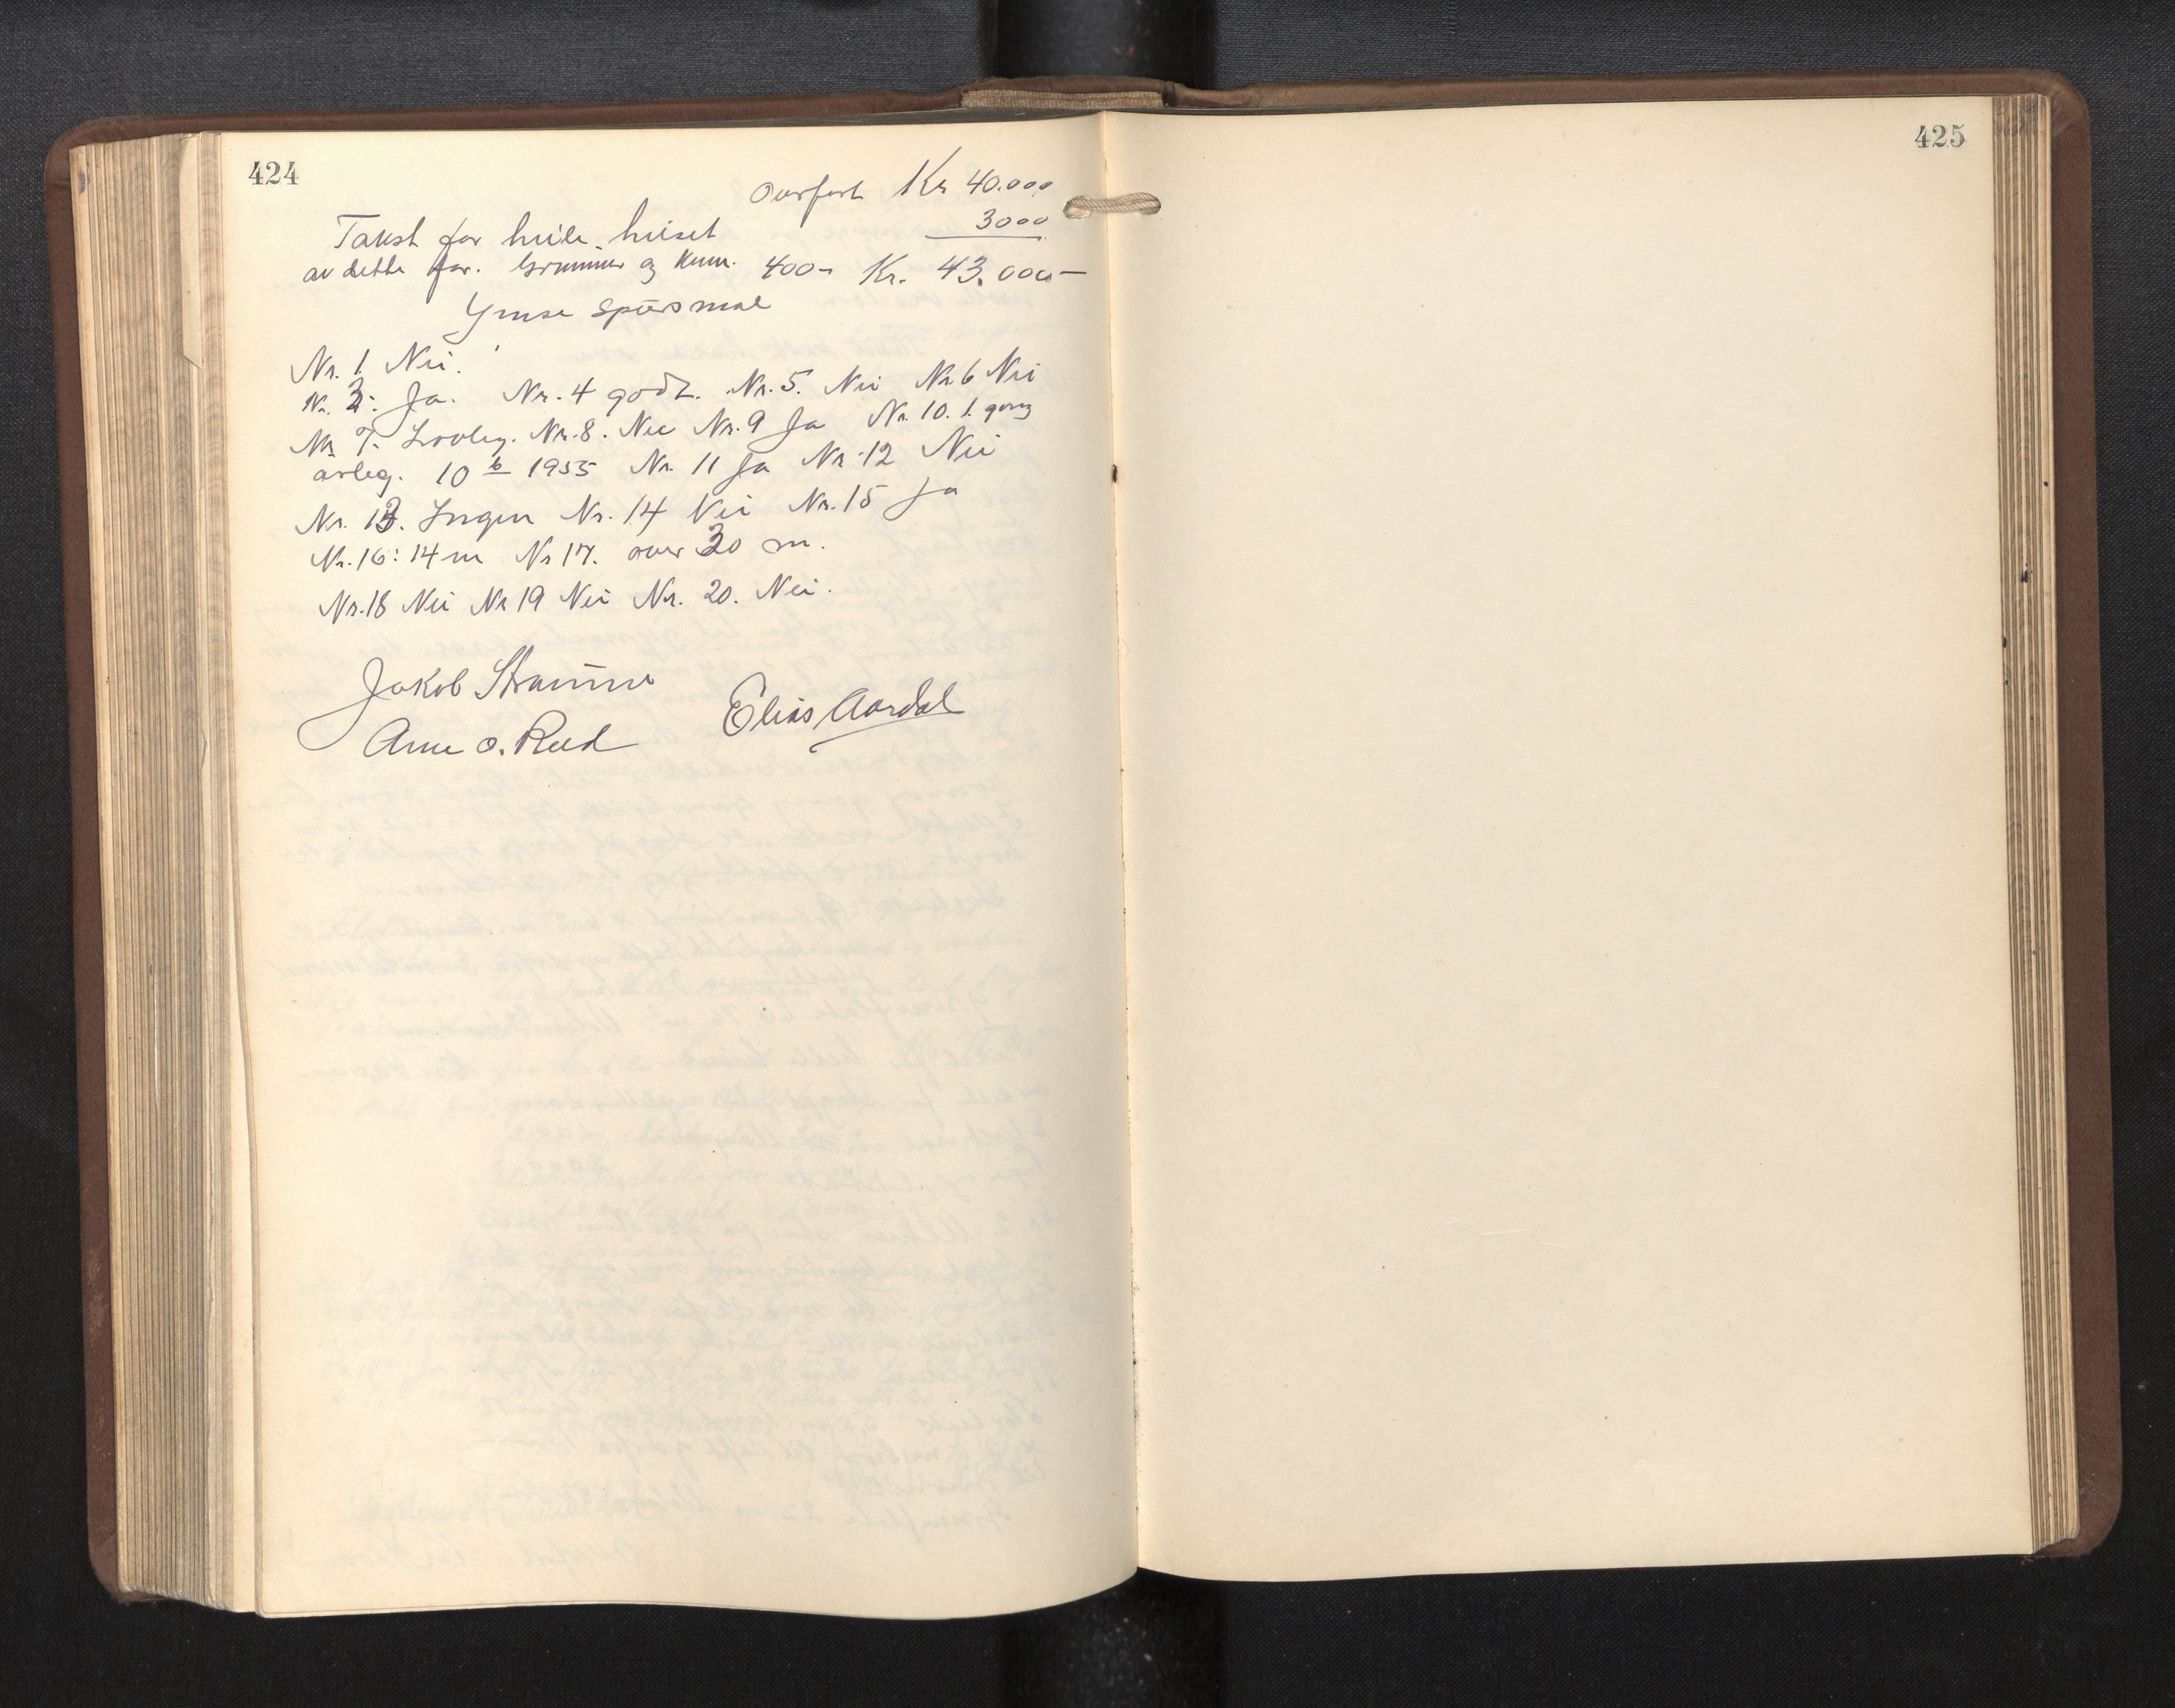 424
Overført Kr 40.000
3000
Takst for heile huset
av dette for. Grunnmur og kum. 400- Kr. 43.000-
Ymse spørsmål
Nr. 1. Nei.
Nr. 3. Ja. Nr. 4 godt. Nr. 5. Nei Nr 6 Nei
Nr 7. Lovleg. Nr. 8. Nei Nr. 9 Ja Nr. 10. 1. gong
årleg. 10/6 1955 Nr. 11 Ja Nr 12 Nei
Nr. 13. Ingen Nr. 14 Nei Nr. 15 Ja
Nr. 16: 14 m Nr 17. over 30 m.
Nr. 18 Nei Nr 19 Nei Nr. 20. Nei.
Jakob Straume
Elias Aardal
Arne O. Reed
425